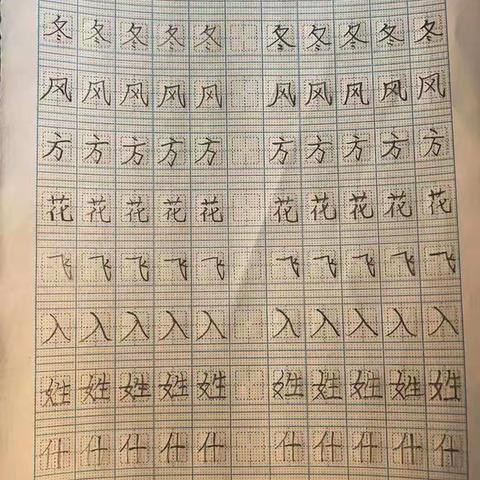 冬冬冬冬冬 冬冬冬冬冬
风风风风风 风风风风风
方方方方方 方方方方方
花花花花花 花花花花花
飞飞飞飞飞 飞飞飞飞飞
入入入入入 入入入入入
姓姓姓姓姓 姓姓姓姓姓
什什什什什 什什什什什